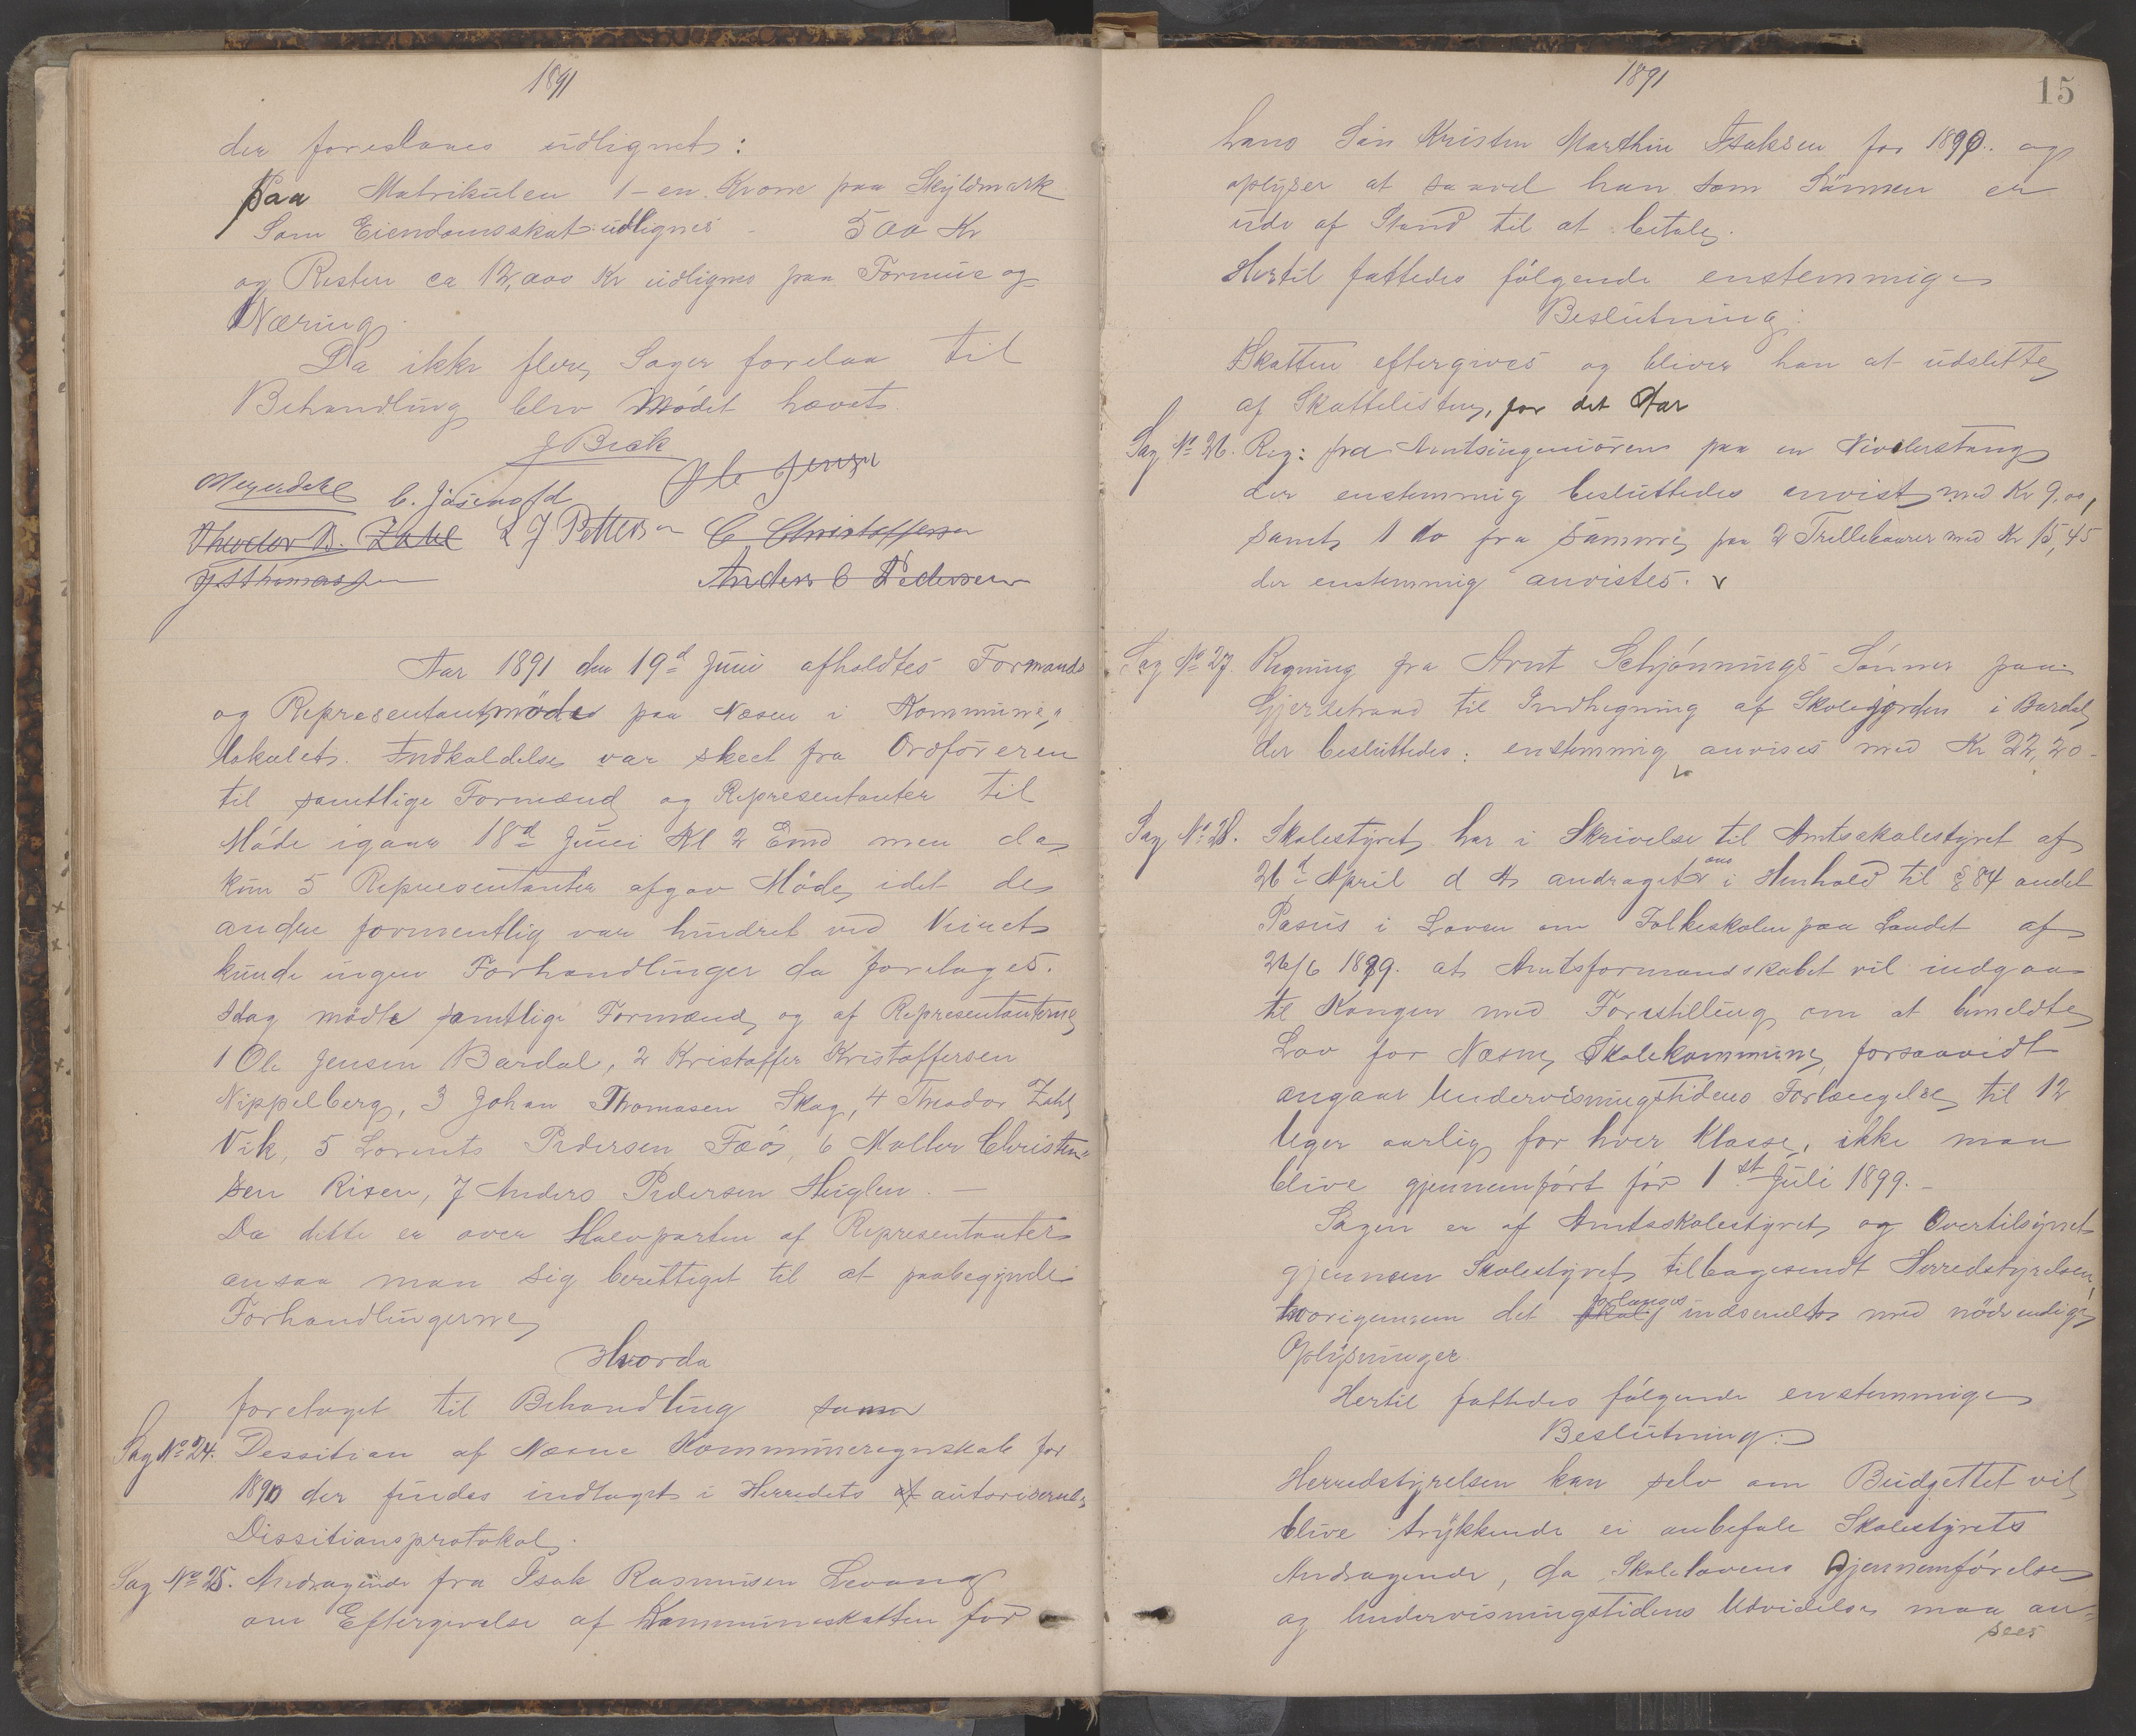 1891
der foreslaaes udlignet:
Paa Matrikulen 1 - en Krone paa Skyldmark
Som Eiendomsskat udlignes - 500 Kr
og Resten ca 12,000 Kr udlignes paa Formue og
Næring.
Da ikke flere Sager forelaa til
Behandling blev Mødet hævet
J Brak
Meyerdahl C. Jasenofd Ole Jensen
Theodor B. Zahl L J Petterson C Christoffersen
J. Thomassen Anders C Pedersen
Aar 1891 den 19d Juni afholdtes Formands
og Representantmøde paa Næsen i Kommune"
lokalet. Indkaldelse var skeet fra Ordføreren
til samtlige Formænd og Representanter til
Møde igaar 18d Juni Kl 2 Emd men da
kun 5 Representanter afgav Møde, idet de
andre formentlig var hindret ved Veiret
kunde ingen Forhandlinger da foretages.
Idag mødte samtlige Formænd og af Representanterne
1 Ole Jensen Bardal, 2 Kristoffer Kristoffersen
Nippelberg, 3 Johan Thomasen Skog, 4 Theodor Zahl
Vik, 5 Lorents Pedersen Fæø, 6 Møller Christen"
sen Risen, 7 Anders Pedersen Huglen. -
Da dette er over Halvparten af Representanter
ansaa man sig berettiget til at paabegynde
Forhandlingerne
Hvorda
foretaget til Behandling
Sag No 24. Dessition af Næsne Kommuneregnskab for
1890 der findes indtaget i Herredets af autoriserede
Dissitionsprotokol.
Sag No 25. Andragende fra Isak Rasmusen Levang
om Eftergivelse af Kommuneskatten for
1891
15
hans Søn Kristen Marthin Isaksen for 1890. og
oplyser at saavel han som Sønnen er
ude af Stand til at betale.
Hertil fattedes følgende enstemmige
Beslutning:
Skatten eftergives og bliver han at udslette
af Skattelisten, for det Aar
Sag No 26. Reg: fra Amtsingeniøren paa en Nivelerstang
der enstemmig besluttedes anvist med Kr 9,00,
samt 1 do fra samme paa 2 Trillebaarer med Kr 15,45
der enstemmig anvistes. v
Sag No 27. Regning fra Arnt Schjønnings Sønner paa
Gjerdetraad til Indhegning af Skolejorden i Bardal
der besluttedes: enstemmig anvises med Kr 22,20 -
v
Sag No 28. Skolestyret har i Skrivelse til Amtsskolestyret af
26d April d A andraget om i Henhold til § 84 andet
Pasus i Loven om Folkeskolen paa Landet af
26/6 1889. at Amtsformandskabet vil indgaa
til Kongen med Forestilling om at bemeldte
Lov for Næsne Skolekommune, forsaavidt
angaar Undervisningstidens Forlængelse til 12
Uger aarlig for hver Klasse, ikke maa
blive gjennemført før 1st Juli 1899. -
Sagen er af Amtsskolestyret og Overtilsynet
gjennem Skolestyret tilbagesendt Herredstyrelsen,
hvorigennem det forlanges indsendt med nødvendige
Oplysninger.
Hertil fattedes følgende enstemmige
Beslutning:
Herredstyrelsen kan selv om Budgettet vil
blive trykkende ei anbefale Skolestyrets
Andragende, da Skolelovens Gjennemførelse
og Undervisningstidens Udvidelse maa an=
sees